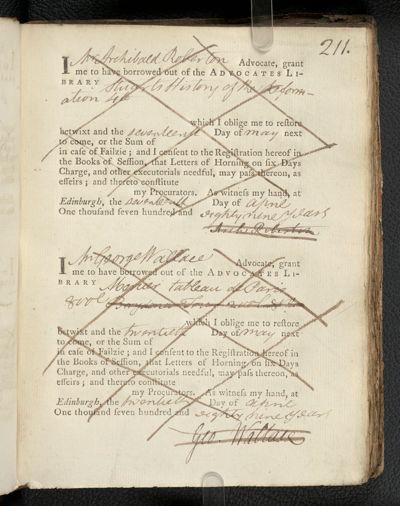 211.
I Mr Archibald Roberton Advocate, grant
me to have borrowed out of the ADVOCATES LI-
BRARY Stuarts History of the Reform-
ation 4to
which I oblige me to reſtore
betwixt and the seventeenth Day of may next
to come, or the Sum of
in caſe of Failzie; and I conſent to the Regiſtration hereof in
the Books of Seſſion, that Letters of Horning on ſix Days
Charge, and other executorials needful, may paſs thereon, as
effeirs; and thereto conſtitute
my Procurators. As witneſs my hand, at
Edinburgh, the seventeenth Day of aprile
One thouſand ſeven hundred and eighty nine years
Arch: Roberton
I Mr George Wallace Advocate, grant
me to have borrowed out of the ADVOCATES LI-
BRARY Mercier tableau de Paris
8 vols
which I oblige me to reſtore
betwixt and the twentieth Day of may next
to come, or the Sum of
in caſe of Failzie; and I conſent to the Regiſtration hereof in
the Books of Seſſion, that Letters of Horning on ſix Days
Charge, and other executorials needful, may paſs thereon, as
effeirs; and thereto conſtitute
my Procurators. As witneſs my hand, at
Edinburgh, the twentieth Day of aprile
One thouſand ſeven hundred and eighty nine years
Geo: Wallace